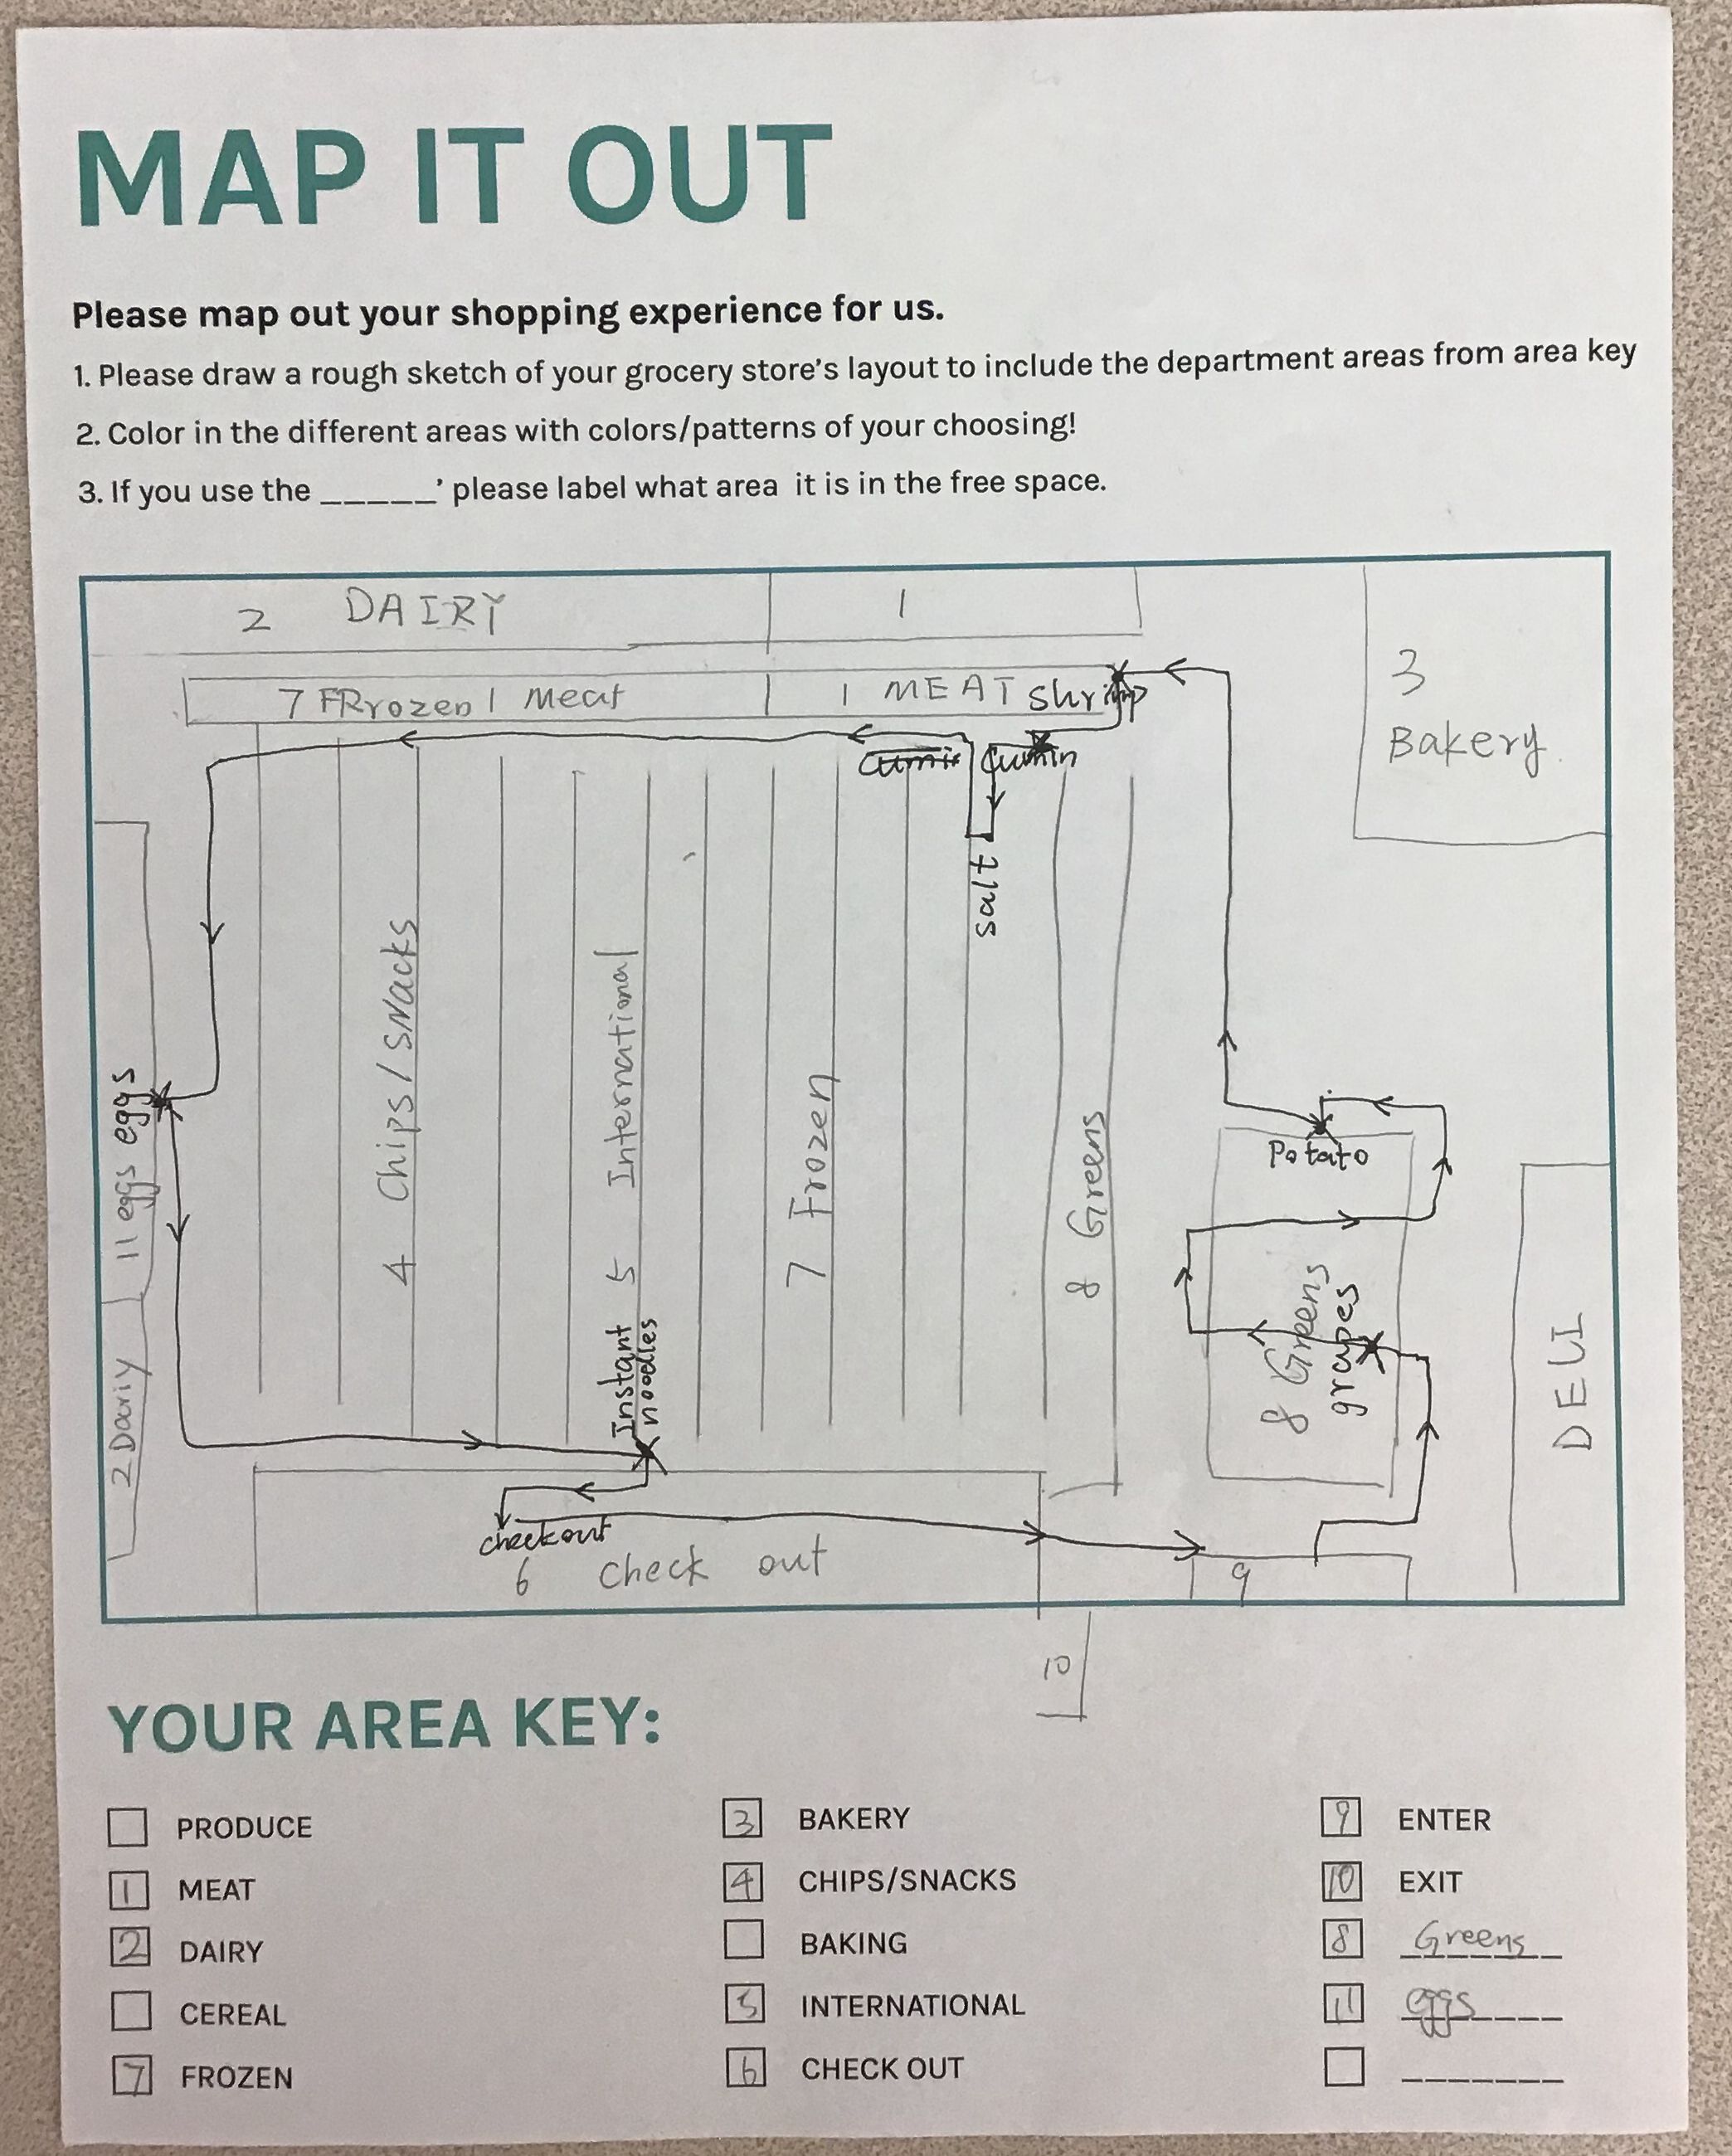 MAP IT OUT
Please map out your shopping experience for us.
1. Please draw a rough sketch of your grocery store's layout to include the department areas from area key
2. Color in the different areas with colors/patterns of your choosing!
3. If you use the _____' please label what area it is in the free space.
2 DAIRY
1
7 FRrozen 1 Meat
1 MEAT shrimp
3
Bakery
cumin
salt
4 Chips/SNacks
5 International
7 Frozen
8 Greens
11 eggs eggs
2 Dariy
Instant
noodles
Potato
8 Greens
grapes
DELI
checkout
6 check out
9
10
YOUR AREA KEY:
PRODUCE
1 MEAT
2 DAIRY
CEREAL
7 FROZEN
3 BAKERY
4 CHIPS/SNACKS
BAKING
5 INTERNATIONAL
6 CHECK OUT
9 ENTER
10 EXIT
8 Greens
11 eggs